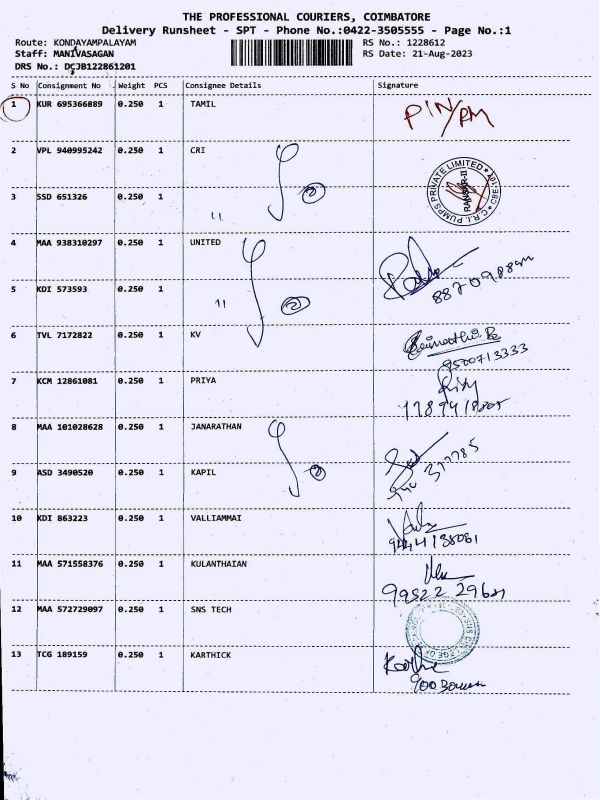 THE PROFESSIONAL COURIERS, COIMBATORE
Delivery Runsheet - SPT - Phone No.:0422-3505555 - Page No.:1
Route: KONDAYAMPALAYAM RS No.: 1228612
Staff: MANIVASAGAN RS Date: 21-Aug-2023
DRS No.: DCJB122861201
S No Consignment No Weight PCS Consignee Details Signature
1 KUR 695366889 0.250 1 TAMIL PIN/RM
2 VPL 940995242 0.250 1 CRI
C.R.I. PUMPS PRIVATE LIMITED CBE
3 SSD 651326 0.250 1 11
4 MAA 938310297 0.250 1 UNITED
5 KDI 573593 0.250 1 11
6 TVL 7172822 0.250 1 KV
9500713333
7 KCM 12861081 0.250 1 PRIYA
8 MAA 101028628 0.250 1 JANARATHAN
9 ASD 3490520 0.250 1 KAPIL
10 KDI 863223 0.250 1 VALLIAMMAI
9444138081
11 MAA 571558376 0.250 1 KULANTHAIAN
12 MAA 572729097 0.250 1 SNS TECH
13 TCG 189159 0.250 1 KARTHICK